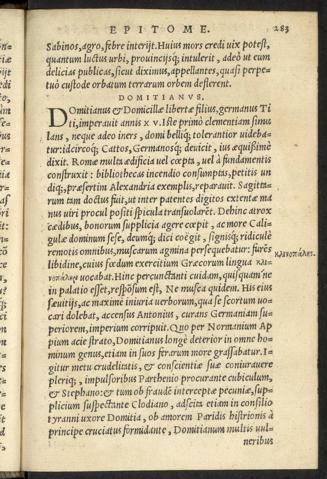 EPITOME. 283
Sabinos, agro, febre interijt. Huius mors credi uix potest,
quantum luctus urbi, prouincijsq; intulerit, adeò ut eum
delicias publicas, sicut diximus, appellantes, quasi perpe-
tuò custode orbatum terrarum orbem deflerent.
DOMITIANVS.
Domitianus & Domicillæ libertæ filius, germanus Ti
ti, imperauit annis xv. Iste primò clementiam simu
lans, neque adeo iners, domi belliq; tolerantior uideba-
tur: idcircoq; Cattos, Germanosq; deuicit, ius æquissimè
dixit. Romæ multa ædificia uel cœpta, uel à fundamentis
construxit: bibliothecas incendio consumptas, petitis un
diq;, præsertim Alexandria exemplis, reparauit. Sagitta-
rum tam doctus fuit, ut inter patentes digitos extentæ ma
nus uiri procul positi spicula transuolarēt. Dehinc atrox
cædibus, bonorum supplicia agere cœpit, ac more Cali-
gulæ dominum sese, deumq; dici coëgit, segnisq; ridiculè
remotis omnibus, muscarum agmina persequebatur: furēs
libidine, cuius fœdum exercitium Græcorum lingua κλι-
νοπάλην uocabat. Hinc percunctanti cuidam, quisquam ne
in palatio esset, respōsum est, Ne musca quidem. His eius
sæuitijs, ac maximè iniuria uerborum, qua se scortum uo-
cari dolebat, accensus Antonius, curans Germaniam su-
periorem, imperium corripuit. Quo per Normanium Ap
pium acie strato, Domitianus longè deterior in omne ho-
minum genus, etiam in suos ferarum more grassabatur. I-
gitur metu crudelitatis, & conscientiæ suæ coniurauere
pleriq;, impulsoribus Parthenio procurante cubiculum,
& Stephano: & tum ob fraudē interceptæ pecuniæ, sup-
plicium suspectante Clodiano, adscita etiam in consilio
tyranni uxore Domitia, ob amorem Paridis histrionis à
principe cruciatus formidante, Domitianum multis uul-
neribus